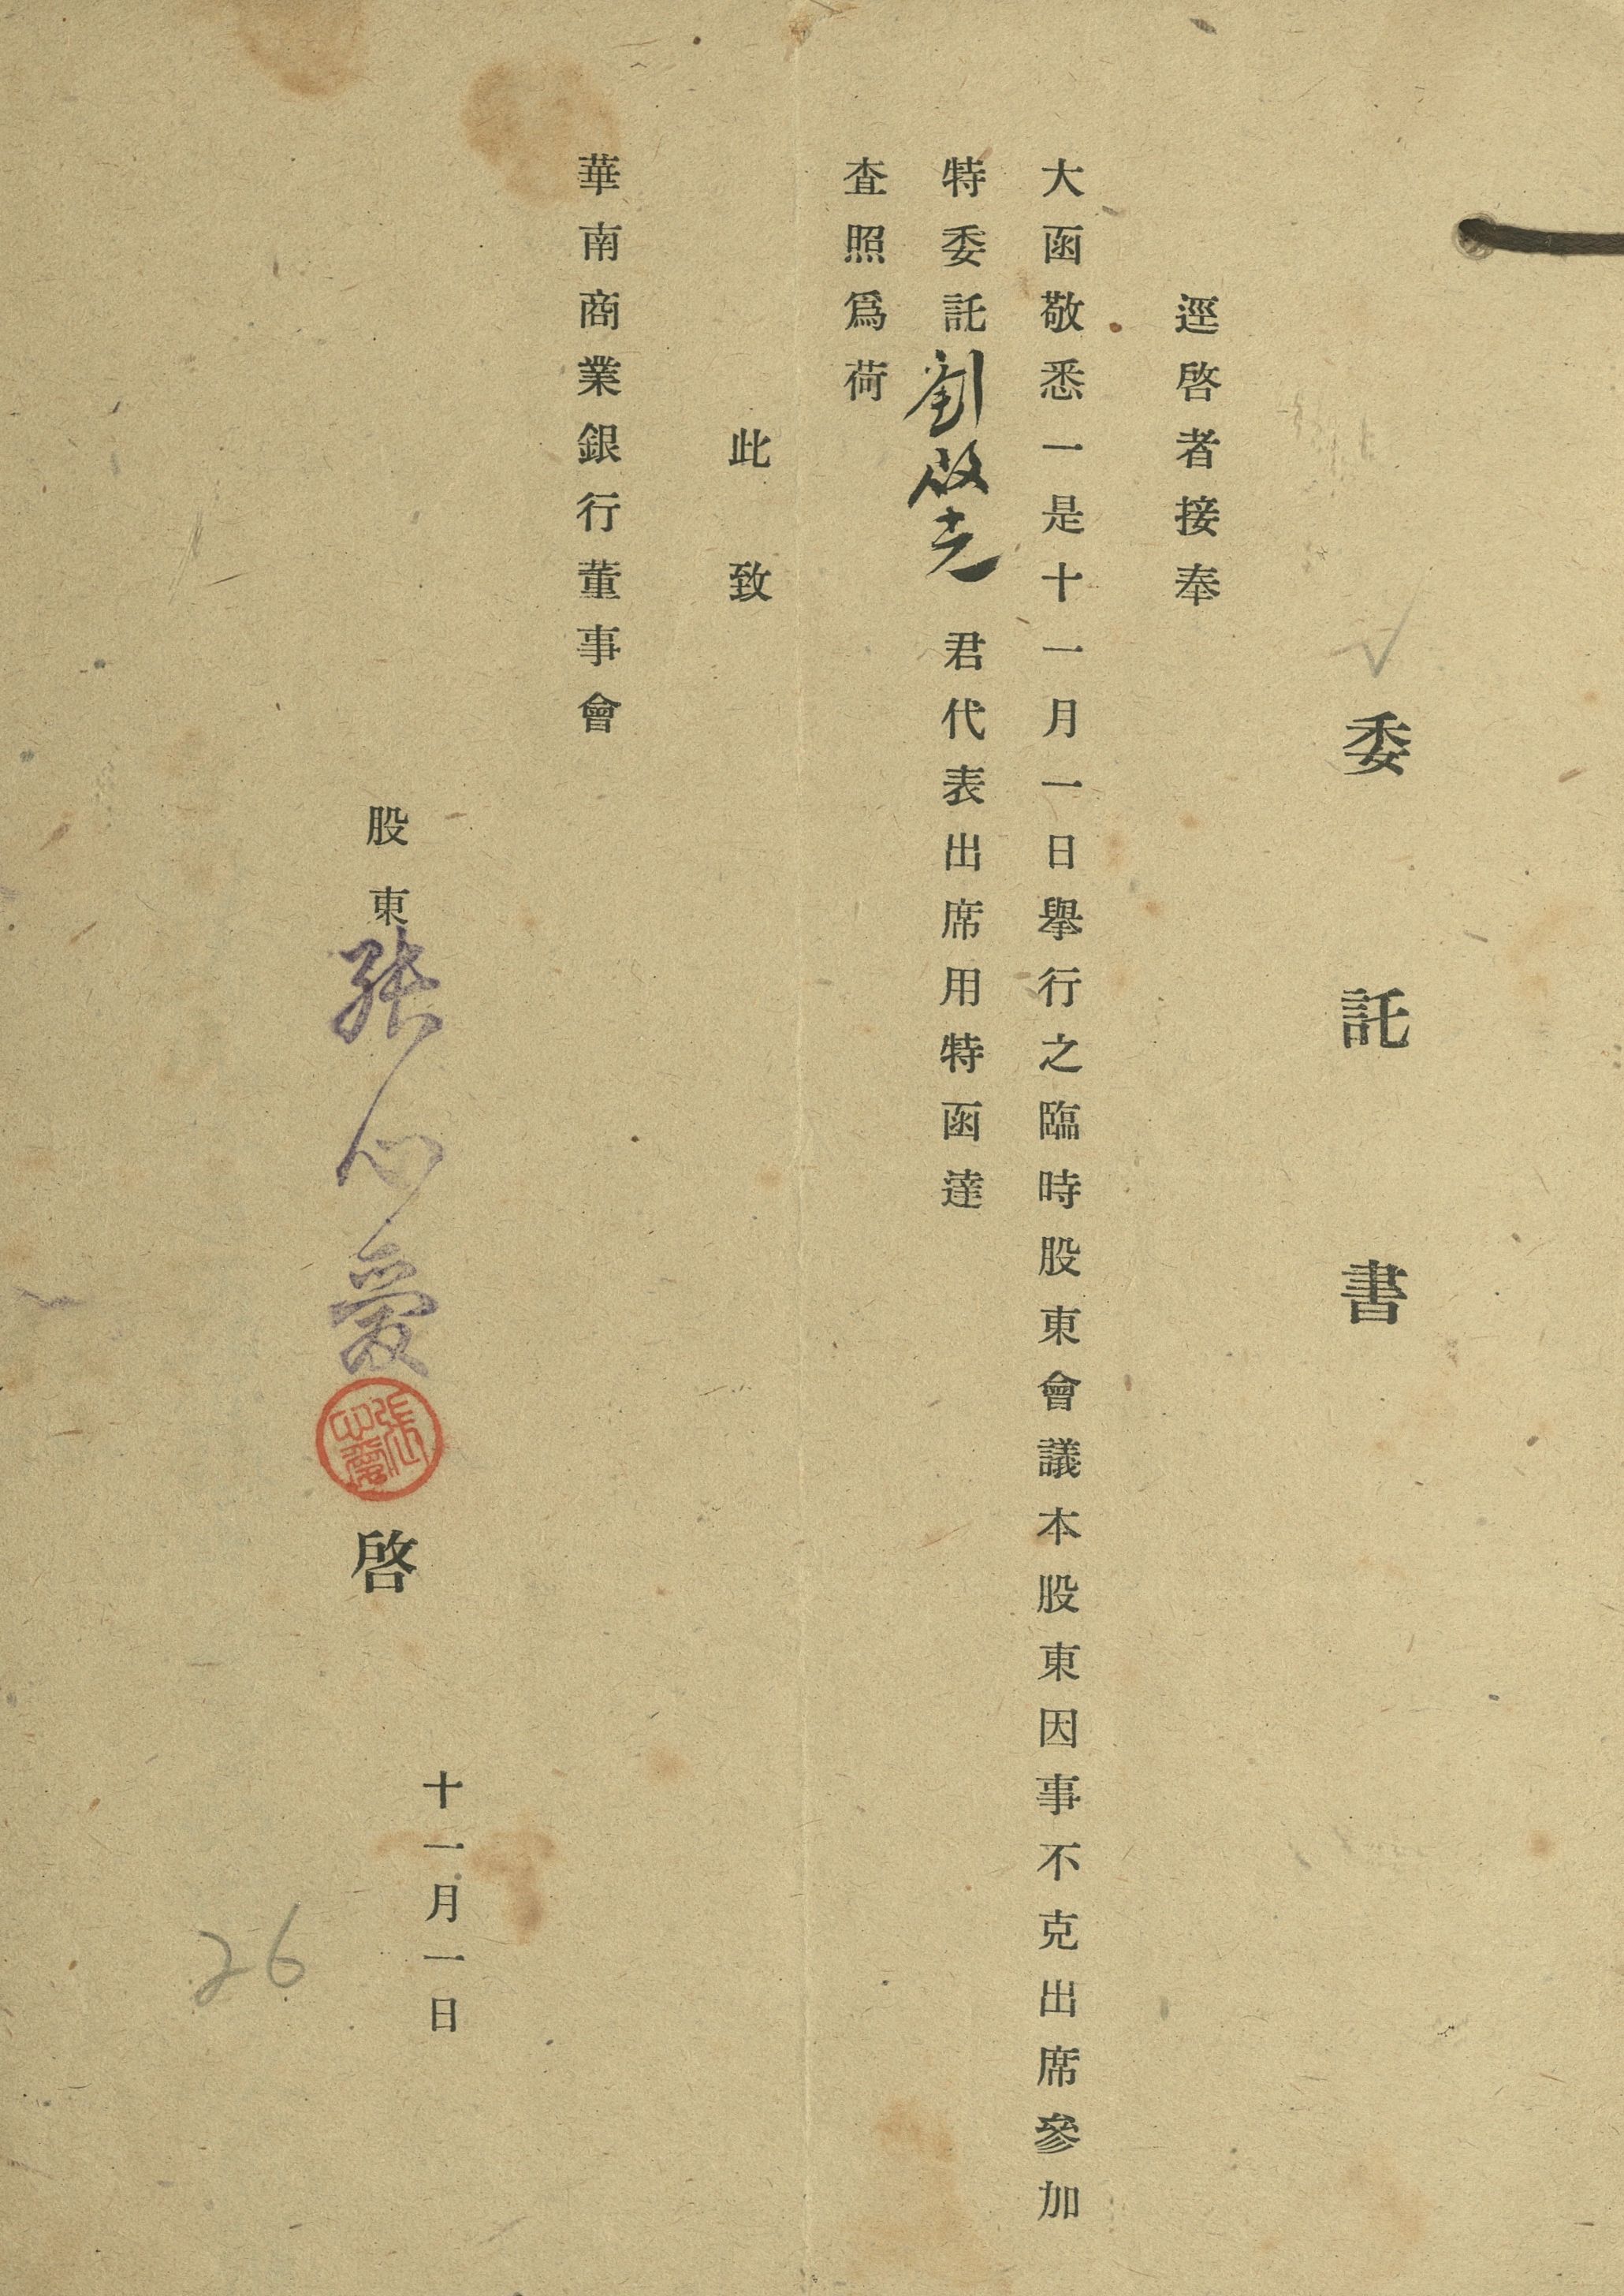 委託書
逕啓者接奉
大函敬悉一是十一月一日舉行之臨時股東會議本股東因事不克出席參加
特委託劉啟光君代表出席用特函達
査照爲荷
此致
華南商業銀行董事會
股東張心愛啓
張心愛
十一月一日
26